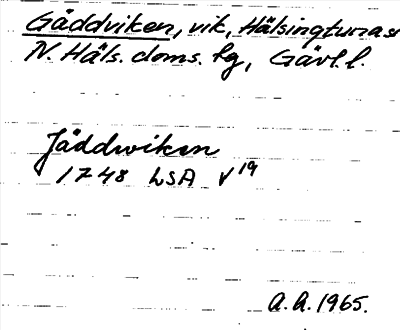 Gäddviken, vik, Hälsingtuna sn
N. Häls. doms. hg, Gävl. l.
Jäddwiken
1748 LSA V 19
A.A. 1965.